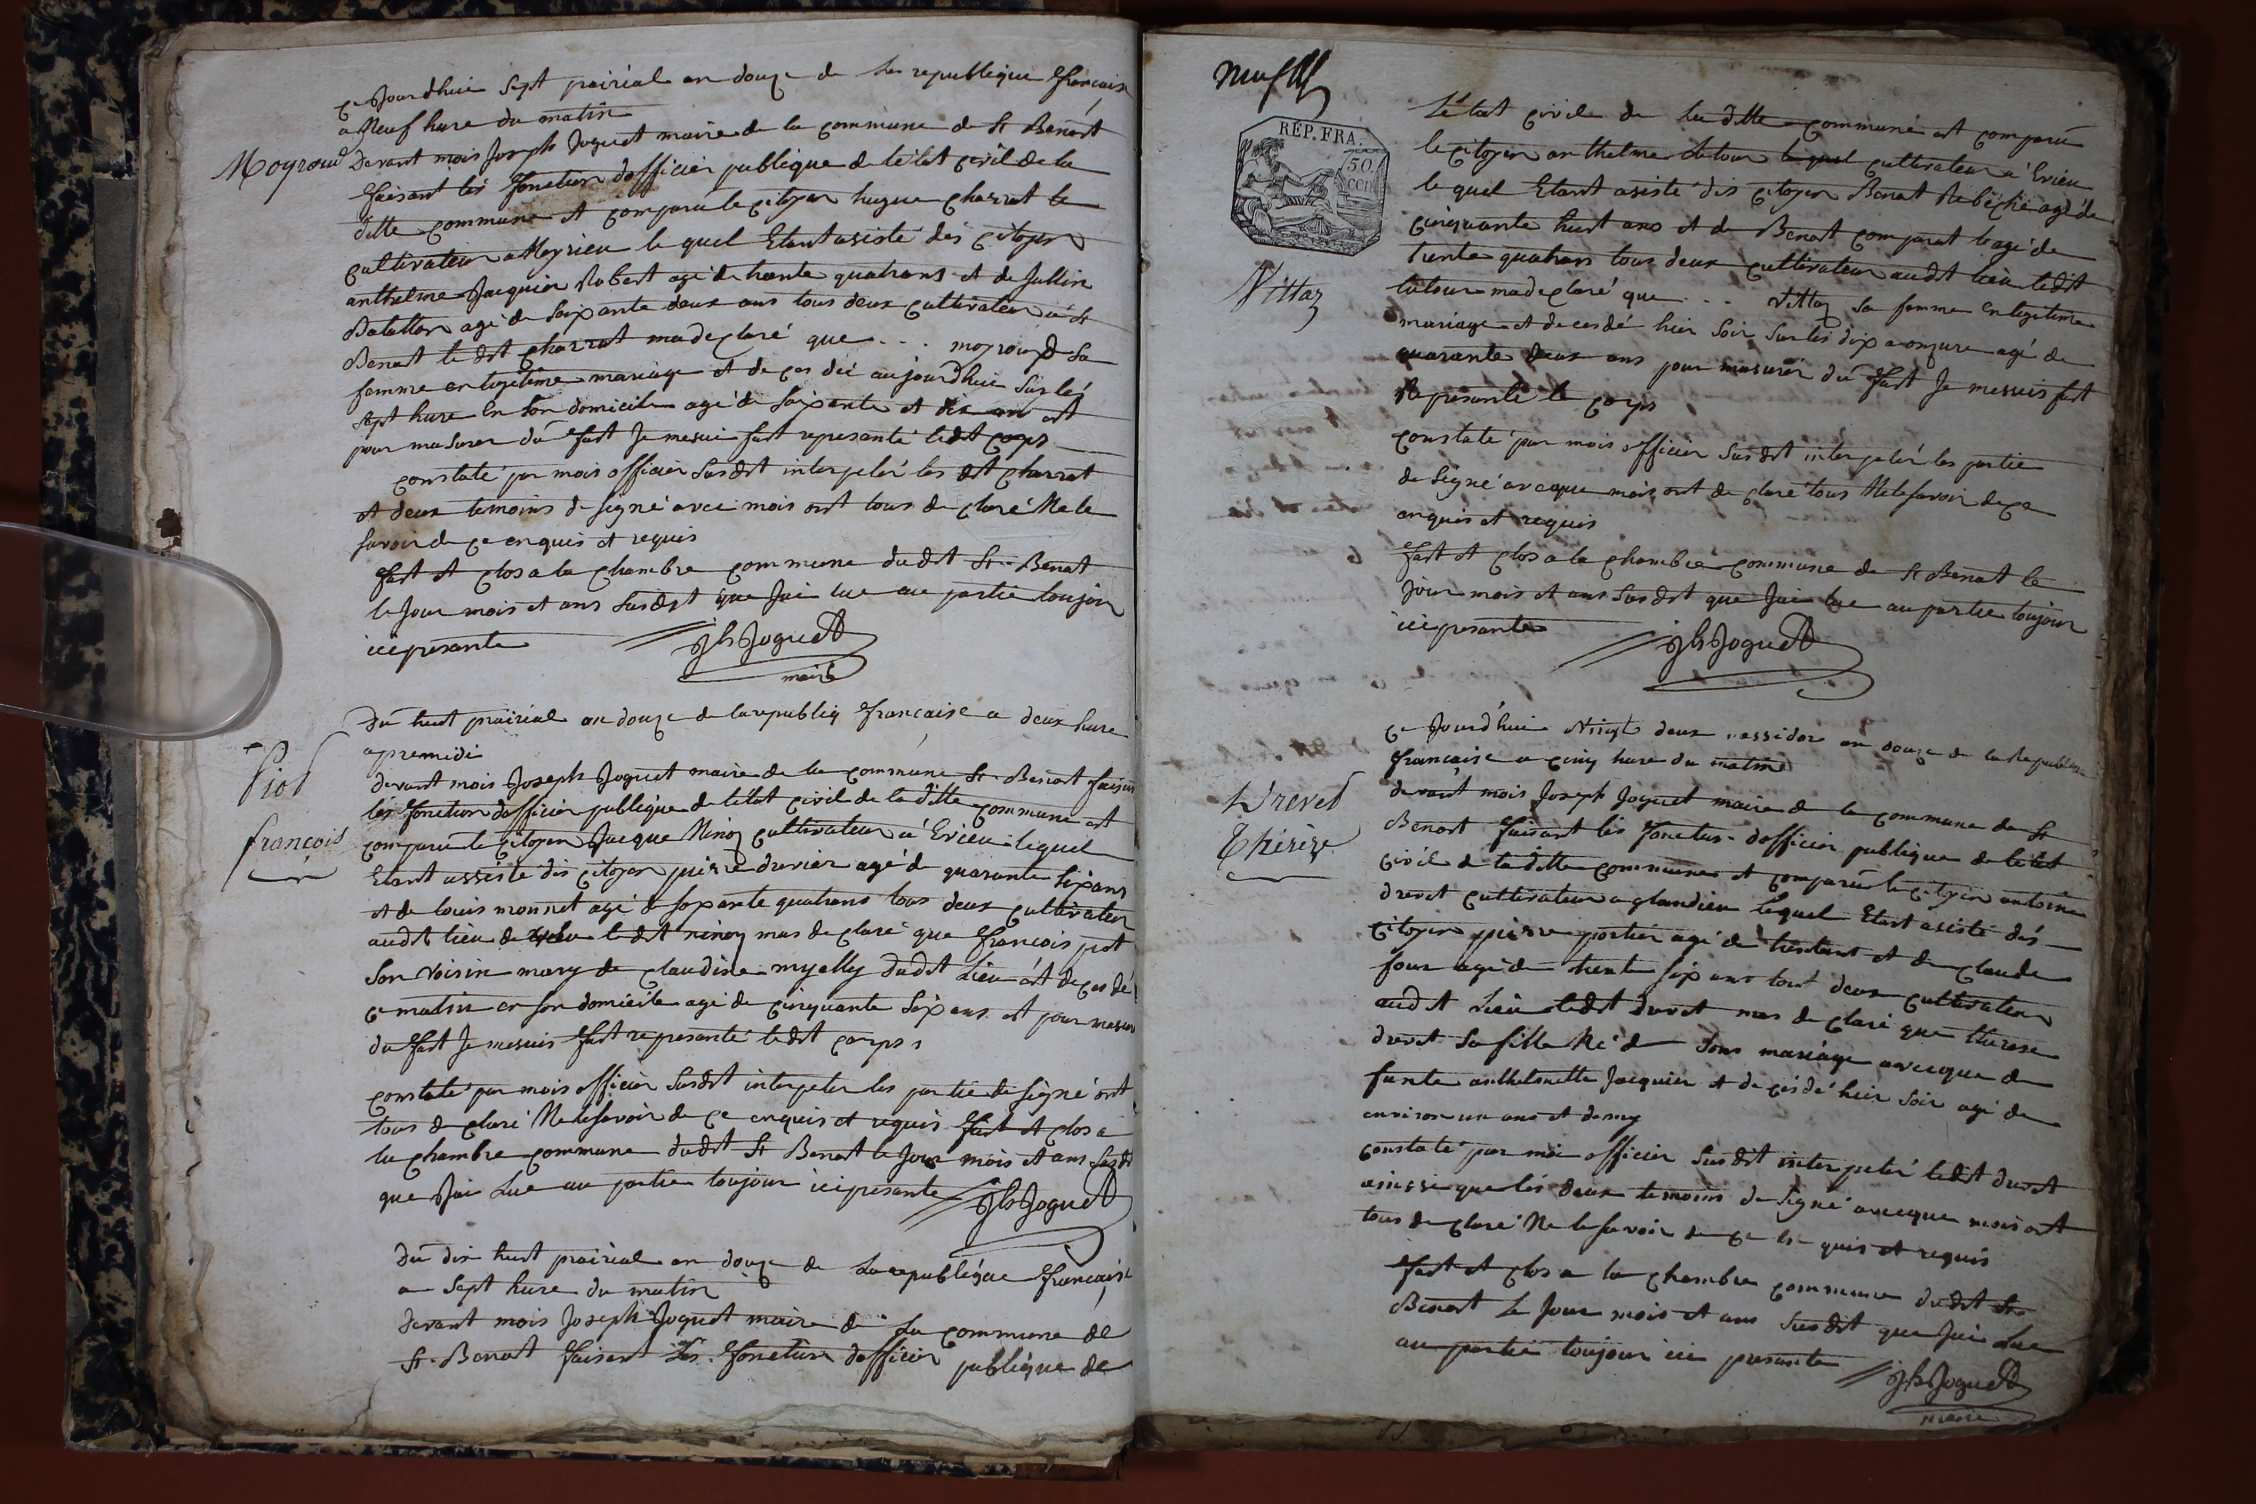 Ce Jourdhui Sept prairial an douze de La republique francaise
a Neuf hure du matin
Moyroud
Devant mois Joseph Joguet maire de la commune de St Benoit
faisant les fonction dofficier publique de letat civil de la
ditte commune et comparu le citoyen hugue charrat le
cultivateur a Meyrieu le quel Etant asisté des citoyen
anthelme Jacquier Robert agé de trante quatrans et de Jullin
Batallon agé de soixante deux ans tous deux cultivateur a St
Benoit le dit charrat ma declaré que . . . moyroud Sa
femme en legitime mariage et deces dé aujourdhui Sur lés
Sept hure en son domicile agé de soixante et dix ans et
pour masurer du fait Je mesui fait representé ledit corps
constaté par mois officier Susdit interpelér les dit charrat
et deux temoins de signé avec mois ont tous de claré Ne le
savoir de ce enquis et requis
fait et clos a la chambre commune dudit St Benoit
le Jour mois et ans Susdit que Jai lue au partie toujour
ici presante JhJoguet
maire
Piot
françois
Du huit prairial an douze de la republiq francaise a deux hure
apremidi
devant mois Joseph Joguet maire de la commune St Benoit faisan
les fonction dofficier publique de letat civil de la ditte commune et
comparu le citoyen Jacque Ninoz cultivateur a Evieu lequel
Etant assisté des citoyen pierre durier agé de quarante six ans
et de louis monnet agé de soixante quatrans tous deux cultivateur
audit lieu de ledit ninoz mas declaré que francois piot
Son voisin mary de claudine myelly dudit Lieu et deces dé
ce matin en son domicile agé de cinquante six ans et pour masurer
du fait Je mesuis fait representé ledit corps
constaté par mois officier Susdit interpeler les partie de signé ont
tous de claré Ne le savoir de ce enquis et requis fait et clos a
la chambre commune dudit St Benoit le Jour mois et ans Susdit
que Jai Lue au partie toujour ici presante JhJoguet
Du dix huit prairial an douze de La republique francaise
a Sept hure du matin
devant mois Joseph Joguet maire de La commune de
St Benoit faisant Les fonction dofficier publique de
neuf
RÉP. FRA.
50
CEN
Létat civile de la ditte commune et comparu
le citoyen anthelme Letour le quel cultivateur a Evieu
le quel Etant asisté dés citoyen Benoit Rebêche agé de
cinquante huit ans et de Benoit comparat agé de
trente quatrans tous deux cultivateur audit lieu ledit
Vittoz
Letour madeclaré que . . . Vittoz sa femme en legitime
mariage et deces dé hier Soir Sur les dix a onzure agé de
quarante deux ans pour masurér du fait Je mesuis fait
Représenté le corps
constaté par mois officier Susdit interpelér les partie
de Signé avecque mois ont de claré tous Ne le savoir de ce
enquis et requis
fait et clos a la chambre commune de St Benoit le
Jour mois et ans Susdit que Jai lue au partie toujour
ici presante JhJoguet
Drevet
Thérèse
Ce Jourd'hui Vingt deux messidor an douze de la Republique
francaise a cinq hure du matin
devant mois Joseph Joguet maire de la commune de St
Benoit faisant lés fonction dofficier publique de létat
civil de la ditte commune et comparu le citoyen antoine
drevet cultivateur a glandieu lequel Etant asisté dés
citoyen pierre portier agé de trentans et de claude
four agé de trente six ans tout deux cultivateur
audit Lieu ledit drevet mas de claré que therese
drevet Sa fille Né de Sons mariage avecque de
funte anthelmette Jacquier et de césdé hier Soir agé de
environ un ans et demy
constaté par moi officier Susdit interpelér ledit drevet
ainssi que lés deux temoins de Signé avecque mois ont
tous de claré Ne le savoir de ce En quis et requis
fait et clos a la chambre commune dudit St
Benoit Le Jour mois et ans Susdit que Jai Lue
au partie toujour ici presante JhJoguet
maire